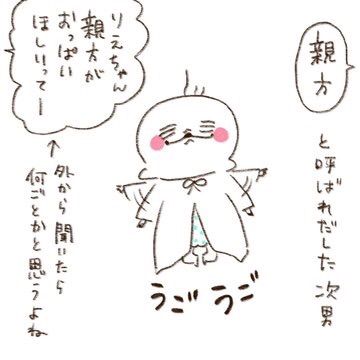 親方
と呼ばれだした次男
りえちゃん
親方が
おっぱい
ほしいってー
↑外から聞いたら
何ごとかと思うよね
うご うご